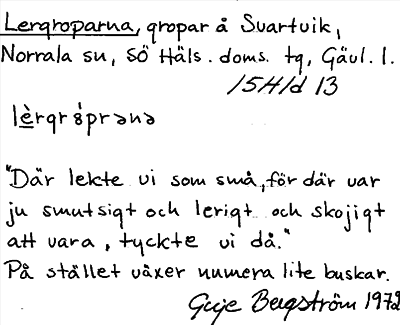 Lergroparna, gropar å Svartvik,
Norrala sn, SÖ Häls. doms. tg, Gävl. l.
15H1d 13
lèrgrṓprənə
"Där lekte vi som små, för där var
ju smutsigt och lerigt och skojigt
att vara, tyckte vi då."
På stället växer numera lite buskar.
Bergström 1972